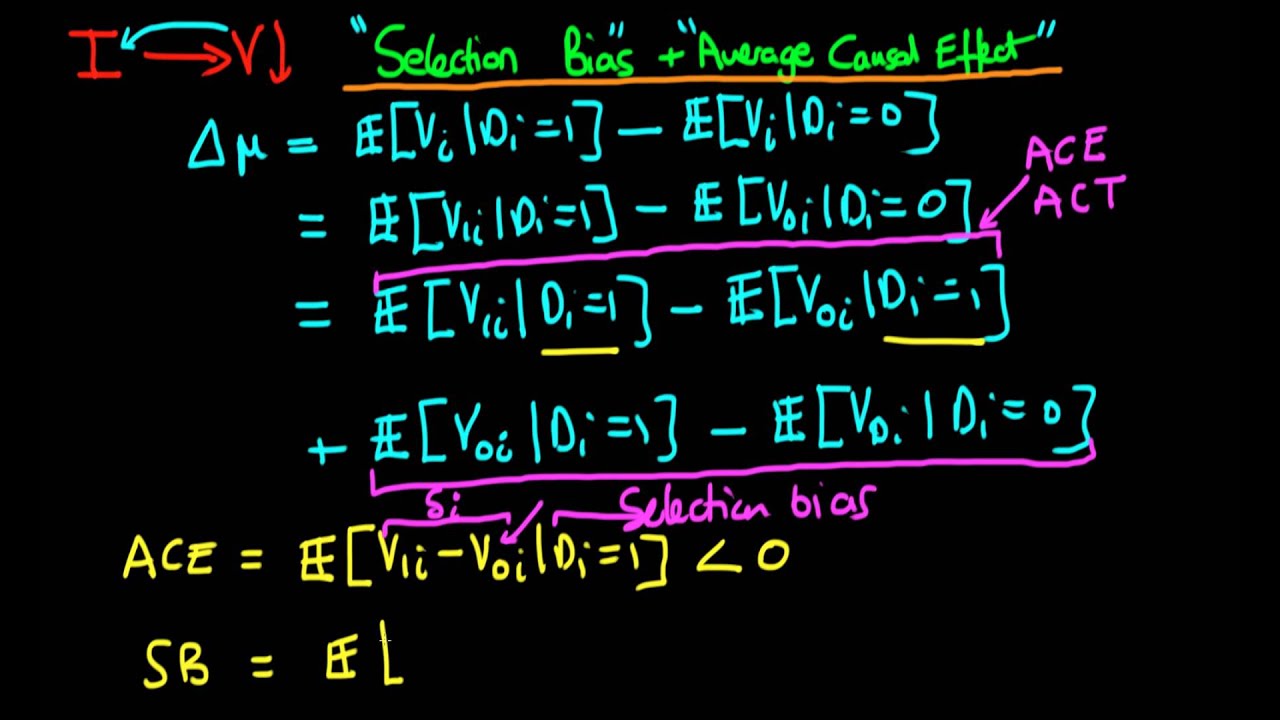 I ⟶ V↓ "Selection Bias" + "Average Causal Effect"
Δμ = 𝔼[Vᵢ|Dᵢ=1] − 𝔼[Vᵢ|Dᵢ=0]
ACE
= 𝔼[V₁ᵢ|Dᵢ=1] − 𝔼[V₀ᵢ|Dᵢ=0]
ACT
= 𝔼[V₁ᵢ|Dᵢ=1] − 𝔼[V₀ᵢ|Dᵢ=1]
+ 𝔼[V₀ᵢ|Dᵢ=1] − 𝔼[V₀ᵢ|Dᵢ=0]
δᵢ Selection bias
ACE = 𝔼[V₁ᵢ−V₀ᵢ|Dᵢ=1] < 0
SB = 𝔼[